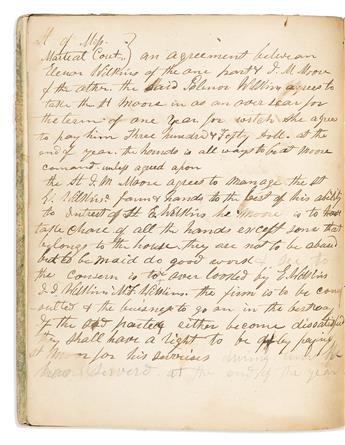 St of Miss. }
Marteal Court. ) an agreement between
Elenor Wilkins of the one part & J. M. Moore
of the other. the said Elenor Wilkins agrees to
take the st Moore in as an over sear for
the term of one year for witch she agree
to pay him Three hundred & Forty Doll. at the
end of year. the hands is all ways to be at Moore
comand unless agreed upon
the st J. M Moore agrees to manage the st
E Wilkins farm & hands to the best of his ability
to intrest of st E Wilkins he Moore is to have
take chare of all the hands except some that
belongs to the house. they are not to be abused
but to be maid do good work &
the concern is to over looked by E. Wilkins
J. D Wilkins. Wilkins. the firm is to be
& the buisness to go on in the best way
If the partey either become disatisfied
they shall have a right to be by paying
st Moore for his servises during time he
has Serverd at the end of the year